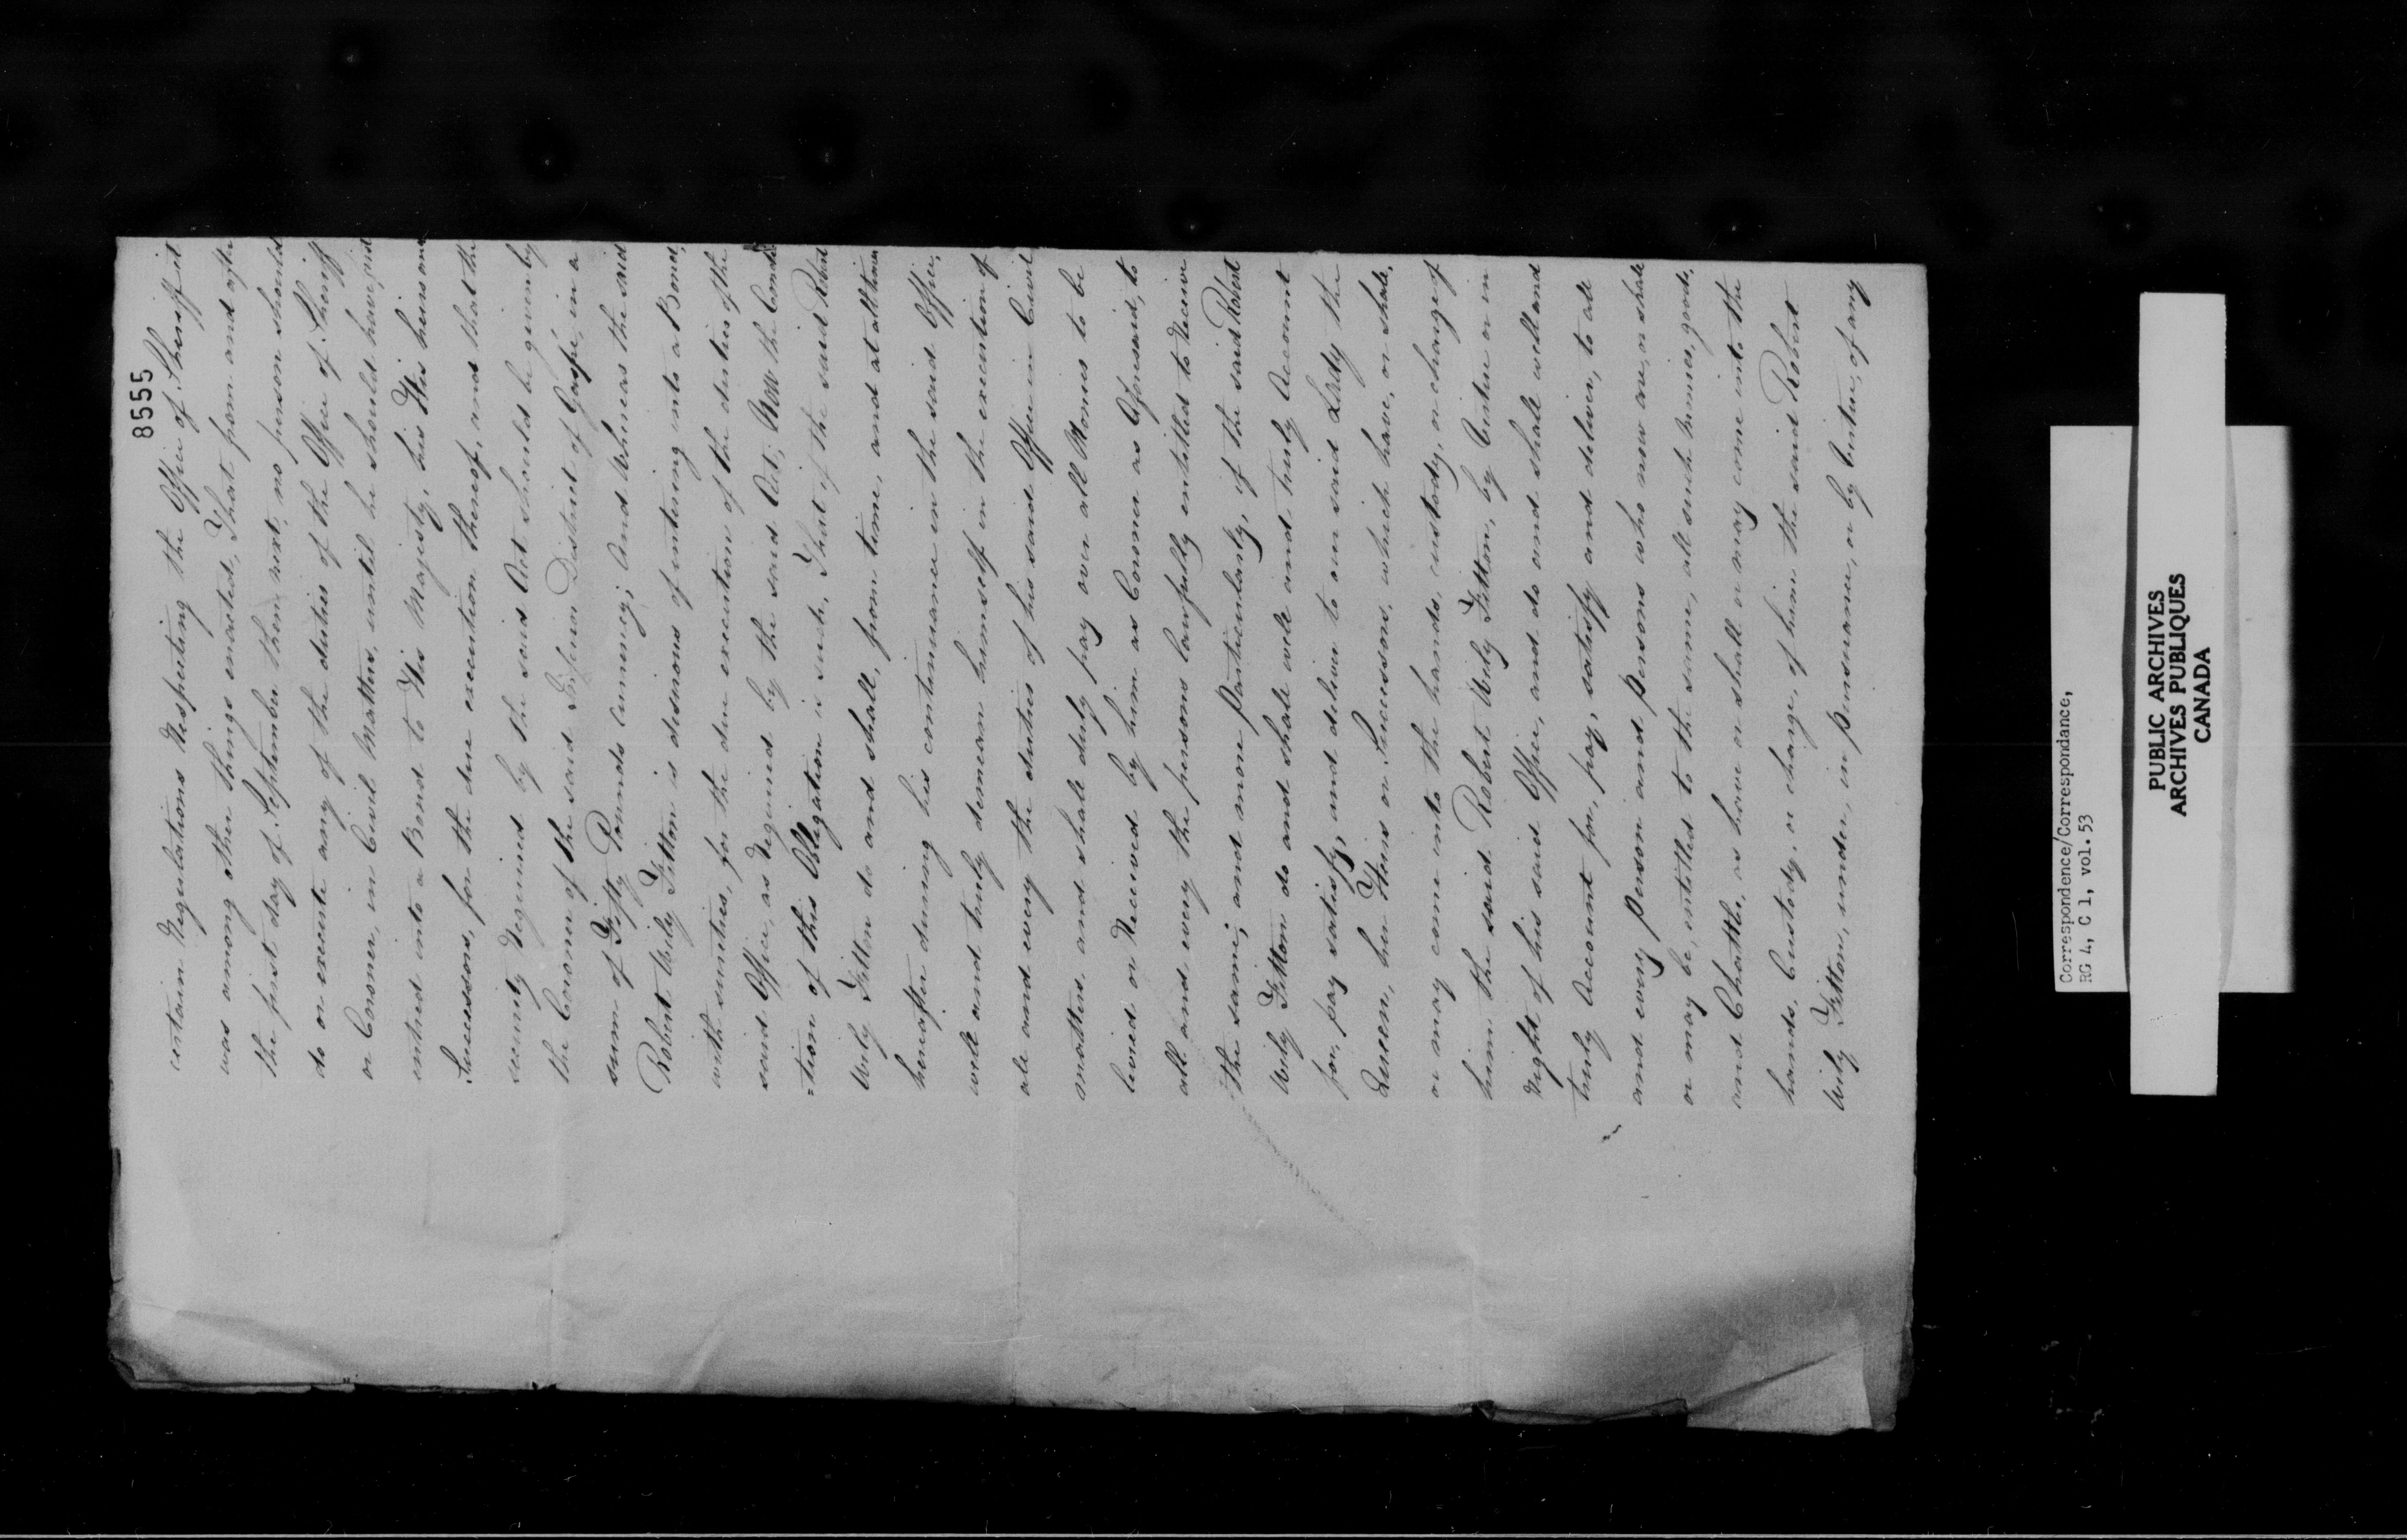 8555
certain Regulations Respecting the Office of Sheriff it
was among other things enacted, That from and after
the first day of September then next, no person should
do or execute any of the duties of the Office of Sheriff
or Coroner, in Civil Matters, until he should have, and
entered into a Bond to His Majesty, his Heirs and
Successors, for the due execution thereof, and that the
security Required by the said Act should be given by
the Coroner of the said Inferior District of Gaspé, in a
sum of Fifty Pounds Currency; And Whereas the said
Robert Wily Fitton is desirous of entering into a Bond,
with sureties, for the due execution of the duties of the
said Office, as Required by the said Act; Now the Condi
=tion of this Obligation is such, That if the said Robert
Wily Fitton do and shall, from time, and at all times
hereafter during his continuance in the said Office,
well and truly demean himself in the execution of
all and every the duties of his said Office in Civil
matters, and shall duly pay over all Monies to be
levied or Received by him as Coroner as Aforesaid, to
all and every the persons lawfully entitled to Receive
the same; and more particularly, if the said Robert
Wily Fitton do and shall well and truly Account
for, pay satisfy, and deliver to our said Lady the
Queen, her Heirs or Successors, which have, or shall,
or may come into the hands, custody, or charge of
him the said Robert Wily Fitton, by Virtue or in
Right of his said Office, and do and shall well and
truly Account for, pay, satisfy and deliver, to all
and every person and persons who now are, or shall
or may be, entitled to the same, all such monies, goods,
and Chattles, as have or shall or may come into the
hands, Custody, or charge, of him the said Robert
Wily Fitton, under, in pursuance, or by Virtue, of any
Correspondence/Correspondance,
RG 4, C 1, vol. 53
PUBLIC ARCHIVES
ARCHIVES PUBLIQUES
CANADA